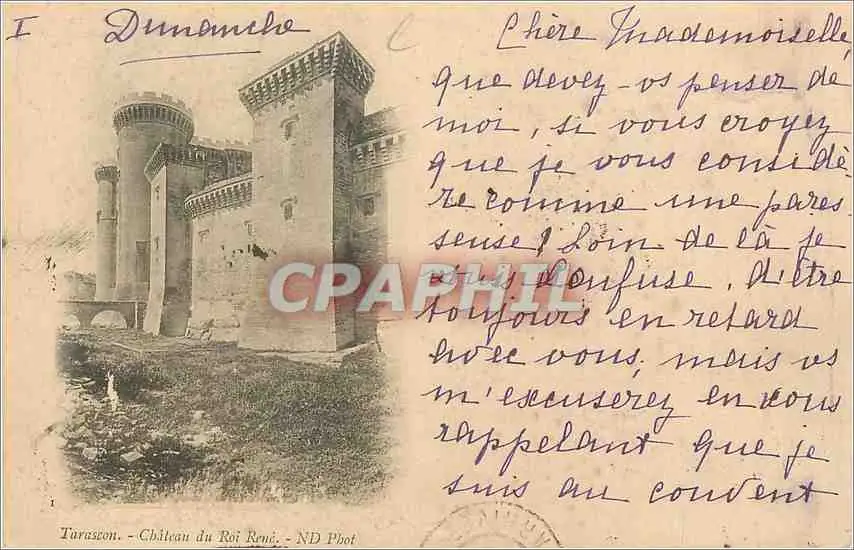 I Dimanche
Chère Mademoiselle,
que devez-vs penser de
moi, si vous croyez
que je vous considè-
re comme une pares
seuse! Loin de là je
suis confuse, d'être
toujours en retard
avec vous, mais vs
m'excuserez en vous
rappelant que je
suis au couvent
CPAPHIL
1
Tarascon. - Château du Roi René. - ND Phot